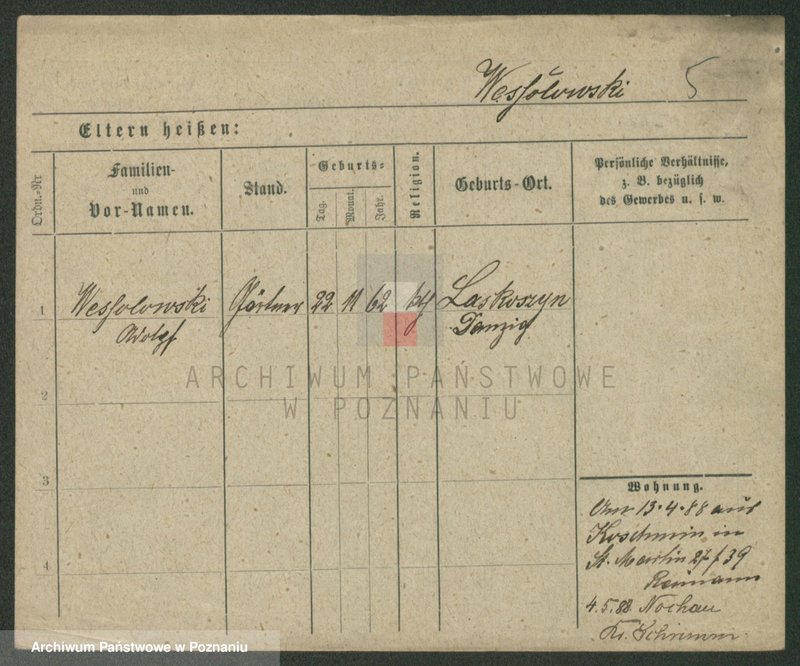 Wessolowski 5
Eltern heißen:
Ordn.-Nr
Familien-
und
Vor-Namen.
Stand.
Geburts-
Tag.
Monat.
Jahr.
Religion.
Geburts-Ort.
Persönliche Verhältnisse,
z. B. bezüglich
des Gewerbes u. s. w.
1 Wessolowski Gärtner 22 11 62 Laskoszyn
Adolf Danzig
ARCHIWUM PAŃSTWOWE
W POZNANIU
2
3
4
Wohnung.
Am 13.4.88 aus
Koschmin in
St. Martin 27 39
Reimann
4.5.88 Nochau
Kr. Schrimm
Archiwum Państwowe w Poznaniu